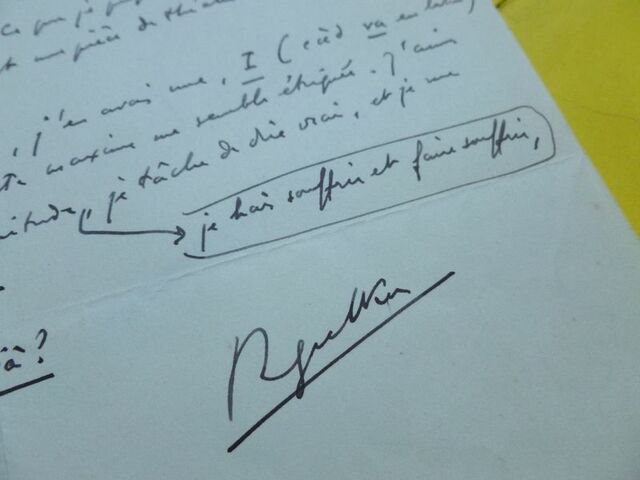 ce que je
une pièce de théâ
, j'en avais une, I (càd va en latin)
te maxime me semble étriquée. J'aim
nitude, je tâche de dire vrai, et je me
je hais souffrir et faire souffrir,
à?